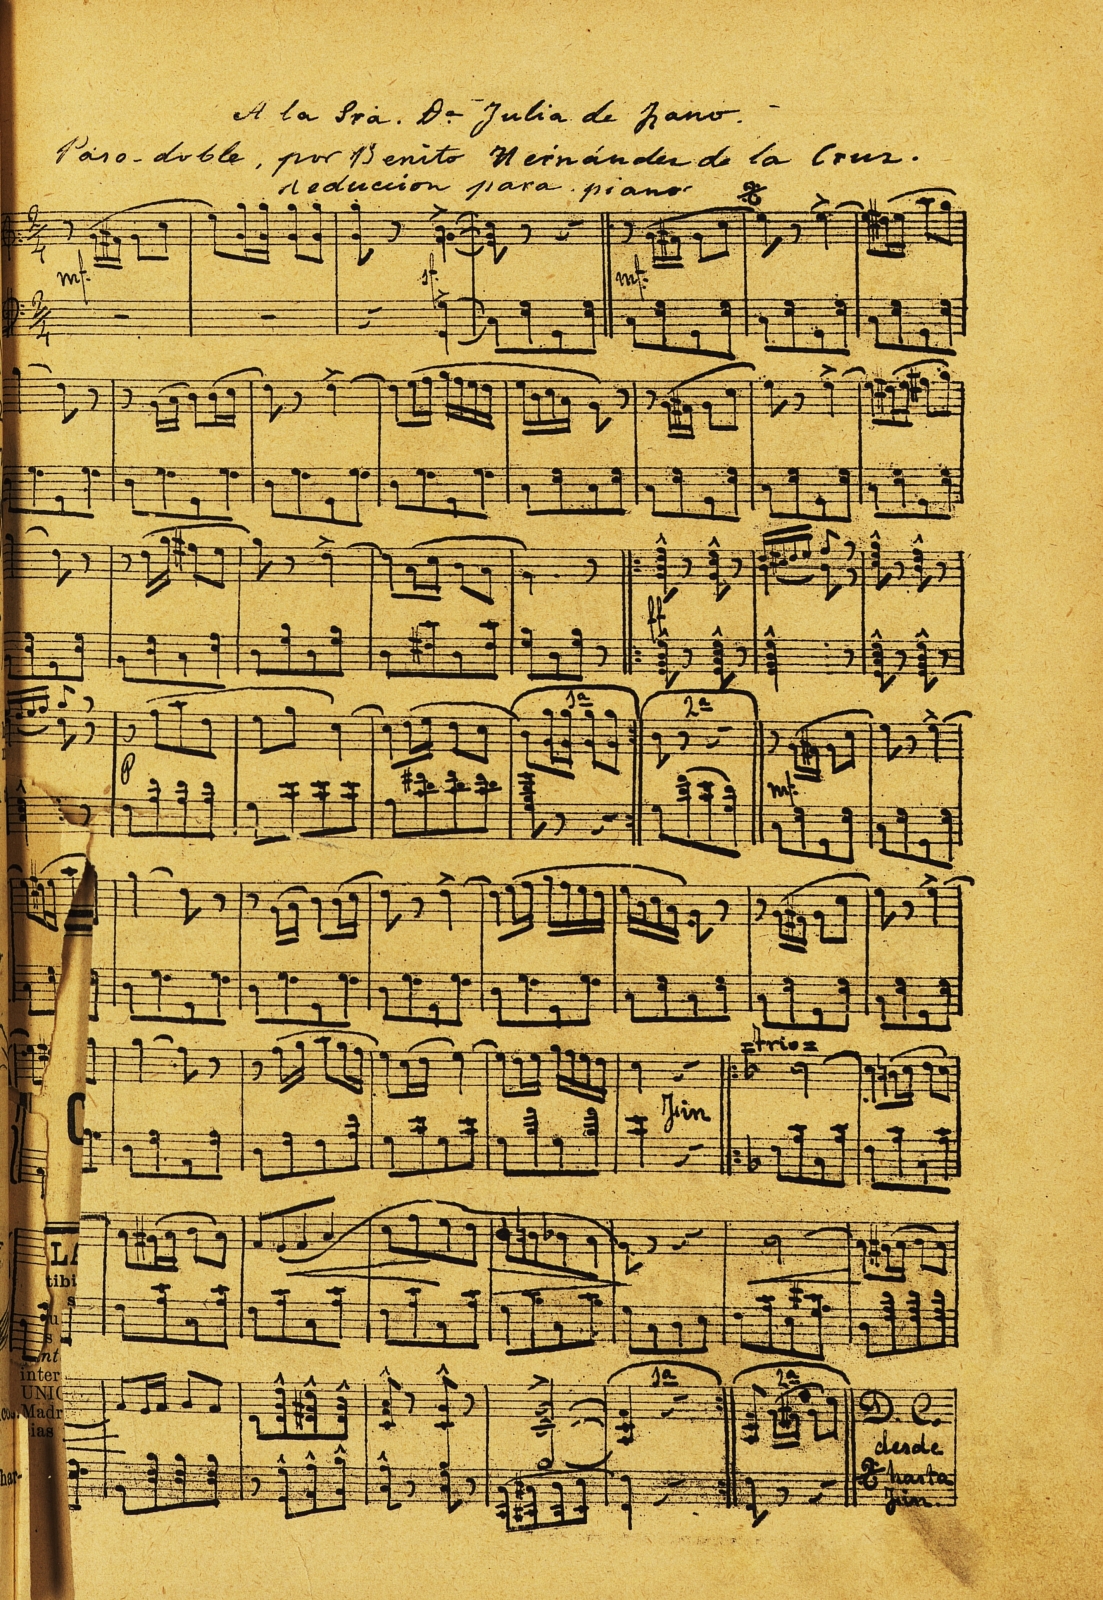 A la Sra. Dª Julia de
Paso-doble, por Benito Hernández de la Cruz.
reducción para piano
2/4
mf.
sf.
mf.
2/4
ff
1ª
2ª
P
mf.
=trio=
Fin
C
LA
tibi
s
u
s
nt
inter
UNIC
Madr
ias
har-
1ª
2ª
D. C.
desde
hasta
Fin.